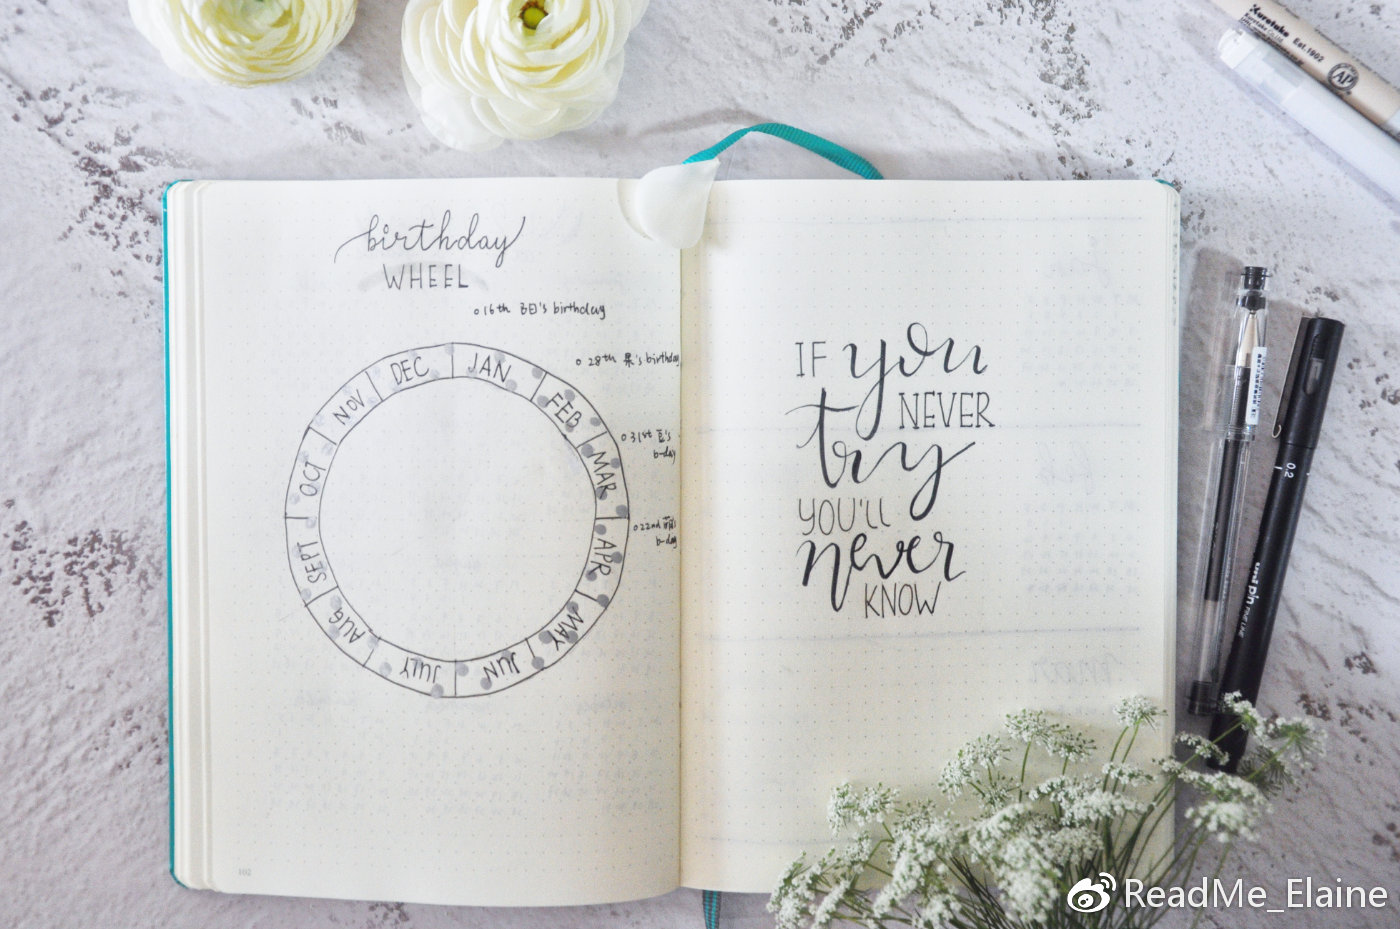 birthday
WHEEL
16th 多日's birthday
28th 果's birthday
31st 豆's
b-day
22nd
b-day
JAN
FEB
MAR
APR
MAY
JUN
JULY
AUG
SEPT
OCT
NOV
DEC
102
IF you
NEVER
try
YOU'LL
never
KNOW
Kuretake
Est.1902
AP
0.2
uni pin FINE LINE
ReadMe_Elaine